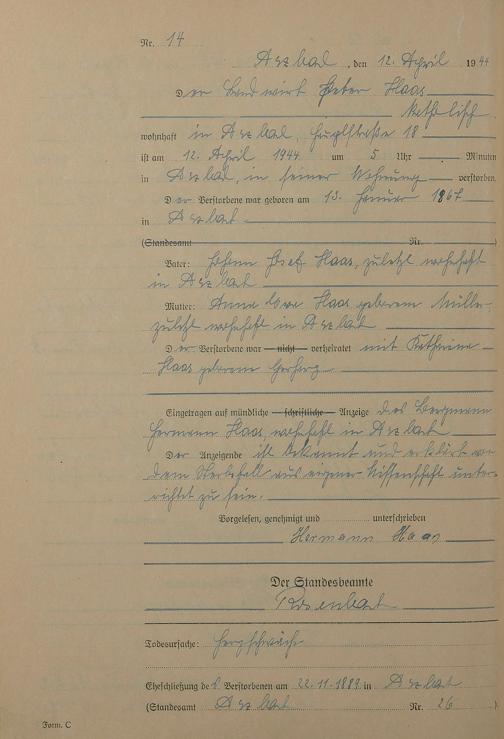 Nr. 14
Arzbach, den 12. April 1944
Der Landwirt Peter Haas
katholisch
wohnhaft in Arzbach, Hauptstraße 18
ist am 12. April 1944 um 5 Uhr Minuten
in Arzbach, in seiner Wohnung verstorben.
Der Verstorbene war geboren am 13. Januar 1867
in Arzbach
(Standesamt Nr. )
Vater: Johann Josef Haas, zuletzt wohnhaft
in Arzbach
Mutter: Anna Haas geborene Müller
zuletzt wohnhaft in Arzbach
Der Verstorbene war nicht verheiratet mit Katharina
Haas geborene
Eingetragen auf mündliche schriftliche Anzeige des Bergmann
Hermann Haas, wohnhaft in Arzbach
Der Anzeigende ist bekannt und erklärt von
dem Sterbefall aus eigener Wissenschaft unter-
richtet zu sein.
Vorgelesen, genehmigt und unterschrieben
Hermann Haas
Der Standesbeamte
Todesursache: Herzschwäche
Eheschließung des Verstorbenen am 22.11.1889 in Arzbach
(Standesamt Arzbach Nr. 26 )
Form. C